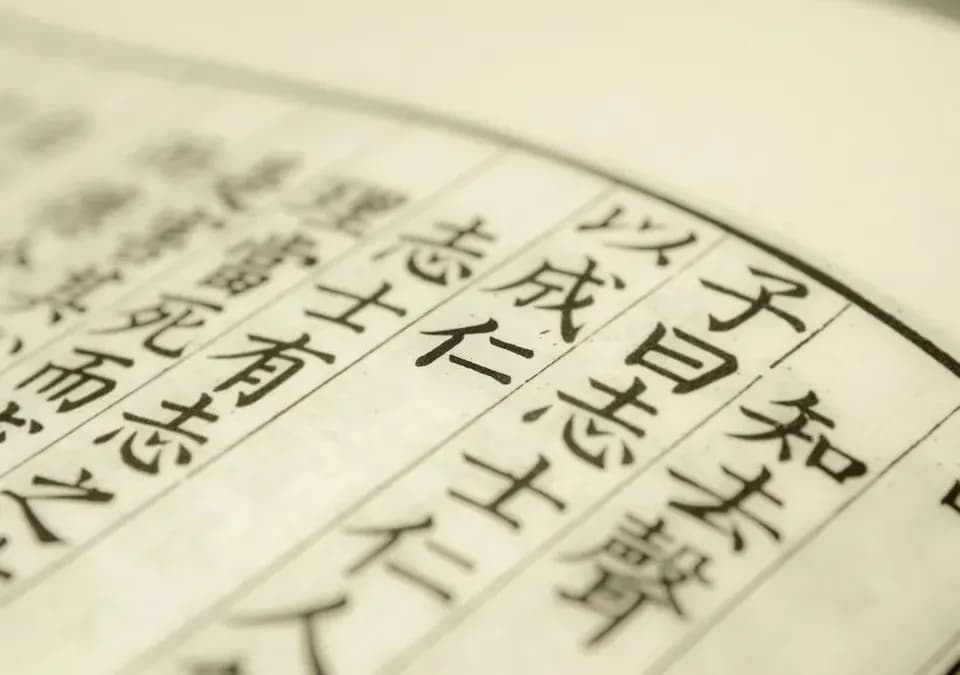 知去聲
子曰志士仁人
以成仁
志士有志之
理當死而
其